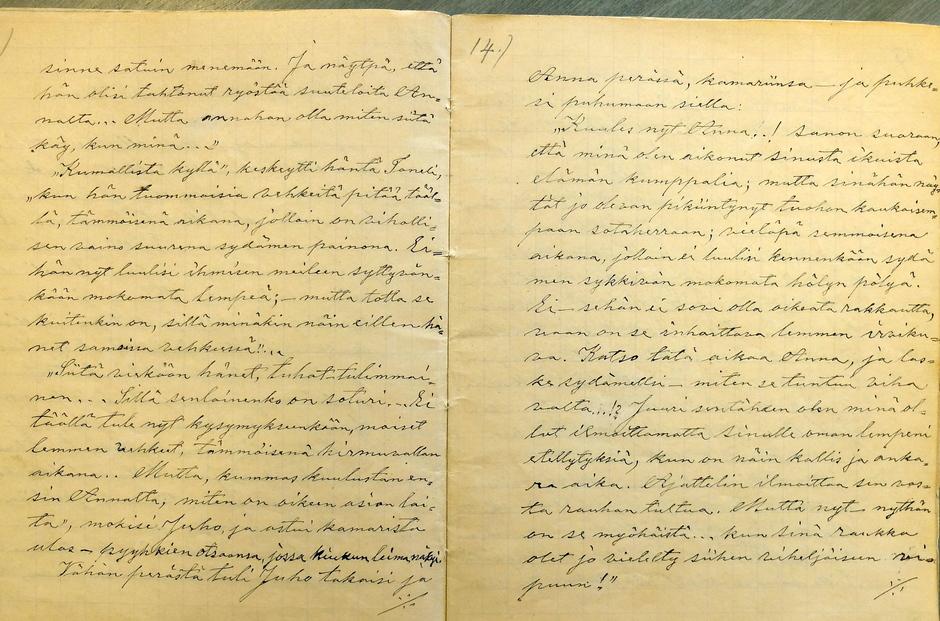 )
sinne satuin menemään. Ja näytpä, että
hän olisi tahtonut ryöstää suuteloita An-
nalta... Mutta annahan olla miten siitä
käy, kun minä..."
"Kumallista kyllä", keskeytti häntä Taneli,
"kun hän tuommoisia vehkeitä pitää tääl-
lä, tämmöisenä aikana, jolloin on viholli-
sen vaino suurena sydämen painona. Ei-
hän nyt luulisi ihmisen mieleen syttyvän-
kään mokomata lempeä; – mutta totta se
kuitenkin on, sillä minäkin näin eillen hä-
net samoissa vehkeissä"...
"Siitä virkaan hänet, tuhat tulimmai-
nen... Sillä senlainenko on soturi... Ei
täällä tule nyt kysymykseenkään, moiset
lemmen vehkeet, tämmöisenä hirmuvallan
aikana.. Mutta, kummas kuulustan en-
sin Annalta, miten on oikeen asian lai-
ta", mökisi Juho, ja astui kamarista
ulos – pyyhkien otsaansa, jossa kiukun leima näkyi.
Vähän perästä tuli Juho takaisi ja
·/.
14.)
Anna perässä, kamariinsa – ja puhke-
si puhumaan siellä:
"Kuules nyt Anna..! Sanon suoraan,
että minä olen aikonut sinusta ikuista
elämän kumppalia; mutta sinähän näy-
tät jo olevan pikiintynyt tuohon kaukaisem-
paan sotaherraan; vieläpä semmoisena
aikana, jolloin ei luulisi kennenkään sydä
men sykkivän mokomata hölyn pölyä.
Ei – sehän ei sovi olla oikeata rakkautta,
vaan on se inhoittava lemmen irviku-
va. Katso tätä aikaa Anna, ja las-
ke sydämelles – miten se tuntuu viha
valta...!? Juuri sentähden olen minä ol-
lut ilmoittamatta sinulle oman lempeni
etellytyksiä, kun on näin kallis ja anka-
ra aika. Ajattelin ilmoittaa sen vas-
ta rauhan tultua. Mutta nyt – nythän
on se myöhäistä... kun sinä raukka
olet jo vieletty siihen viheljäiseen ri-
puun!"
·/.